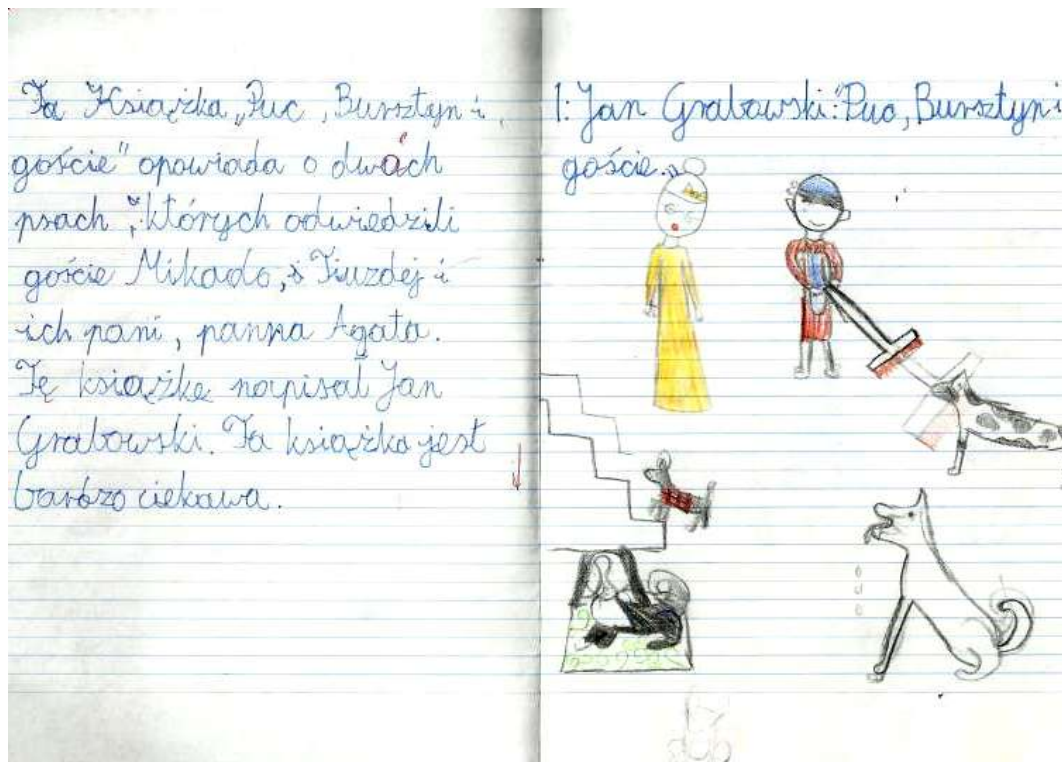 Ta Książka „Puc, Bursztyn i
goście" opowiada o dwóch
psach, których odwiedzili
goście Mikado, i Tiuzdej i
ich pani, panna Agata.
Tę książkę napisał Jan
Grabowski. Ta książka jest
bardzo ciekawa.
1: Jan Grabowski: "Puc, Bursztyn i
goście."